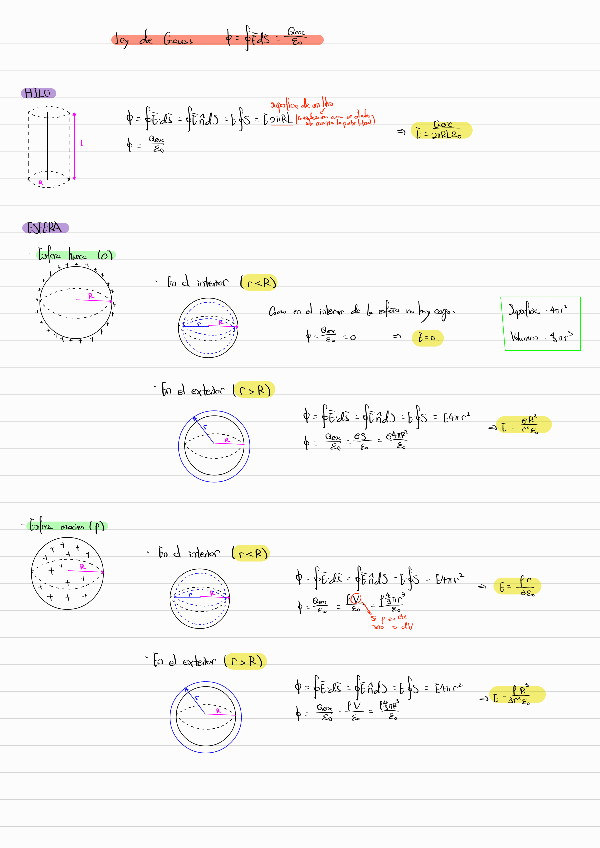 Ley de Gauss  ϕ = ∮Ēds̄ = Qenc/ε₀
HILO
Superficie de un hilo
ϕ = ∮Ē·ds̄ = ∮Ē·n̂dS = E∮S = E2πRL
ϕ = Qenc/ε₀
⇒ E = Qenc/2πRLε₀
L
R
ESFERA
Esfera hueca (σ)
R
· En el interior (r < R)
r R
Como en el interior de la esfera no hay carga.
ϕ = Qenc/ε₀ = 0 ⇒ E = 0
Superficie = 4πr²
Volumen = 4/3πr³
· En el exterior (r > R)
r R
ϕ = ∮Ē·ds̄ = ∮Ē·n̂dS = E∮S = E4πr²
ϕ = Qenc/ε₀ = σS/ε₀ = σ4πR²/ε₀
⇒ E = σR²/r²ε₀
· Esfera maciza (ρ)
R
· En el interior (r < R)
r R
ϕ = ∮Ē·ds̄ = ∮Ē·n̂dS = E∮S = E4πr²
ϕ = Qenc/ε₀ = ρV/ε₀ = ρ4/3πr³/ε₀
⇒ E = ρr/3ε₀
si ρ = cte
· En el exterior (r > R)
r R
ϕ = ∮Ē·ds̄ = ∮Ē·n̂dS = E∮S = E4πr²
ϕ = Qenc/ε₀ = ρV/ε₀
⇒ E = ρR³/3r²ε₀